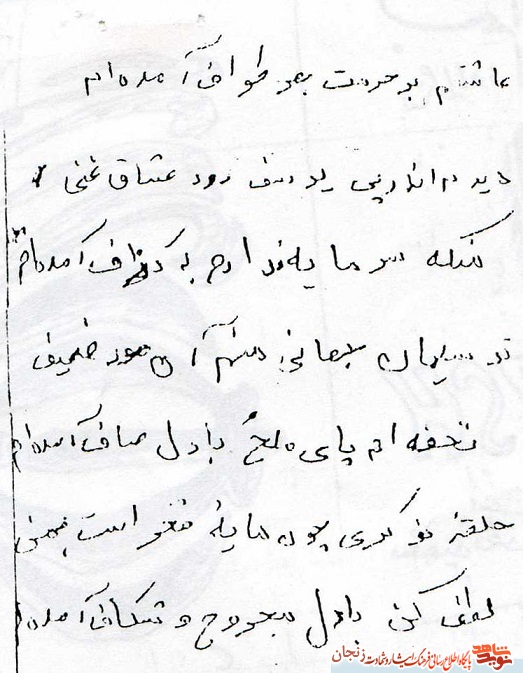 عاشقم بر حرمت بهر طواف آمده‌ام
دیده‌ام از پی یوسف رود عشاق غنی
منکه سرمایه ندارم به گزاف آمده‌ام
تو سلیمان جهانی منم آن مور ضعیف
تحفه ام پای ملخ با دل صاف آمده‌ام
حلقه نوکری چون مایه فخر است بمن
لطف کن با دل مجروح و شکاف آمده‌ام
نوید شاهد پایگاه اطلاع رسانی فرهنگ ایثار و شهادت زنجان